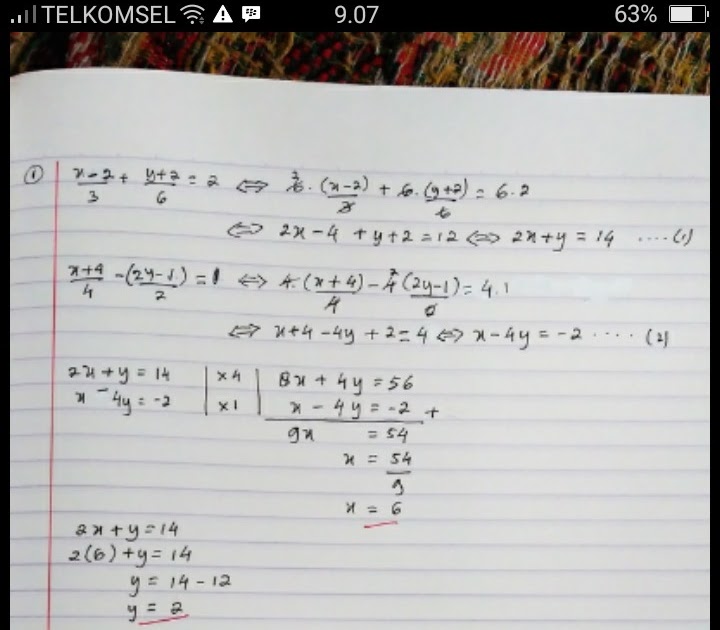 TELKOMSEL 9.07 63%
① x-2/3 + y+2/6 = 2 ⇔ 6·(x-2)/3 + 6·(y+2)/6 = 6.2
⇔ 2x-4 + y+2 = 12 ⇔ 2x+y = 14 ....(1)
x+4/4 - (2y-1)/2 = 1 ⇔ 4·(x+4)/4 - 4(2y-1)/2 = 4.1
⇔ x+4-4y+2 = 4 ⇔ x-4y = -2 .... (2)
2x+y = 14 | x4 | 8x + 4y = 56
x - 4y = -2 | x1 | x - 4y = -2 +
9x = 54
x = 54/9
x = 6
2x+y = 14
2(6)+y = 14
y = 14 - 12
y = 2